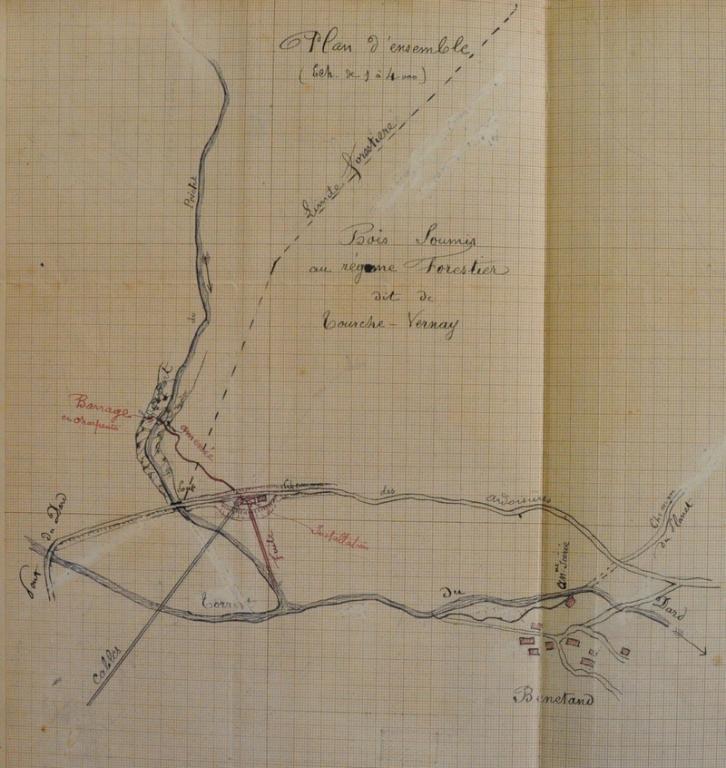 Plan d'ensemble
(Ech. de 1 à 4.000)
Limite Forestière
Bois Soumis
au régime Forestier
dit de
Tourche-Vernay
de
Barrage
en charpente
amenée
Chemin des ardoisières
Installation
fuite
Pont du Dard
Torrent du Dard
Cables
anne Scierie
Chemin
du Planet
Bénetand